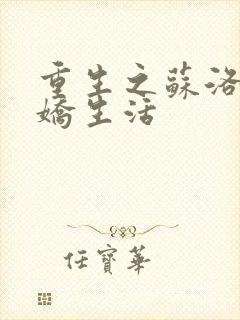 重生之蘇洛
嬌生活
任寶華